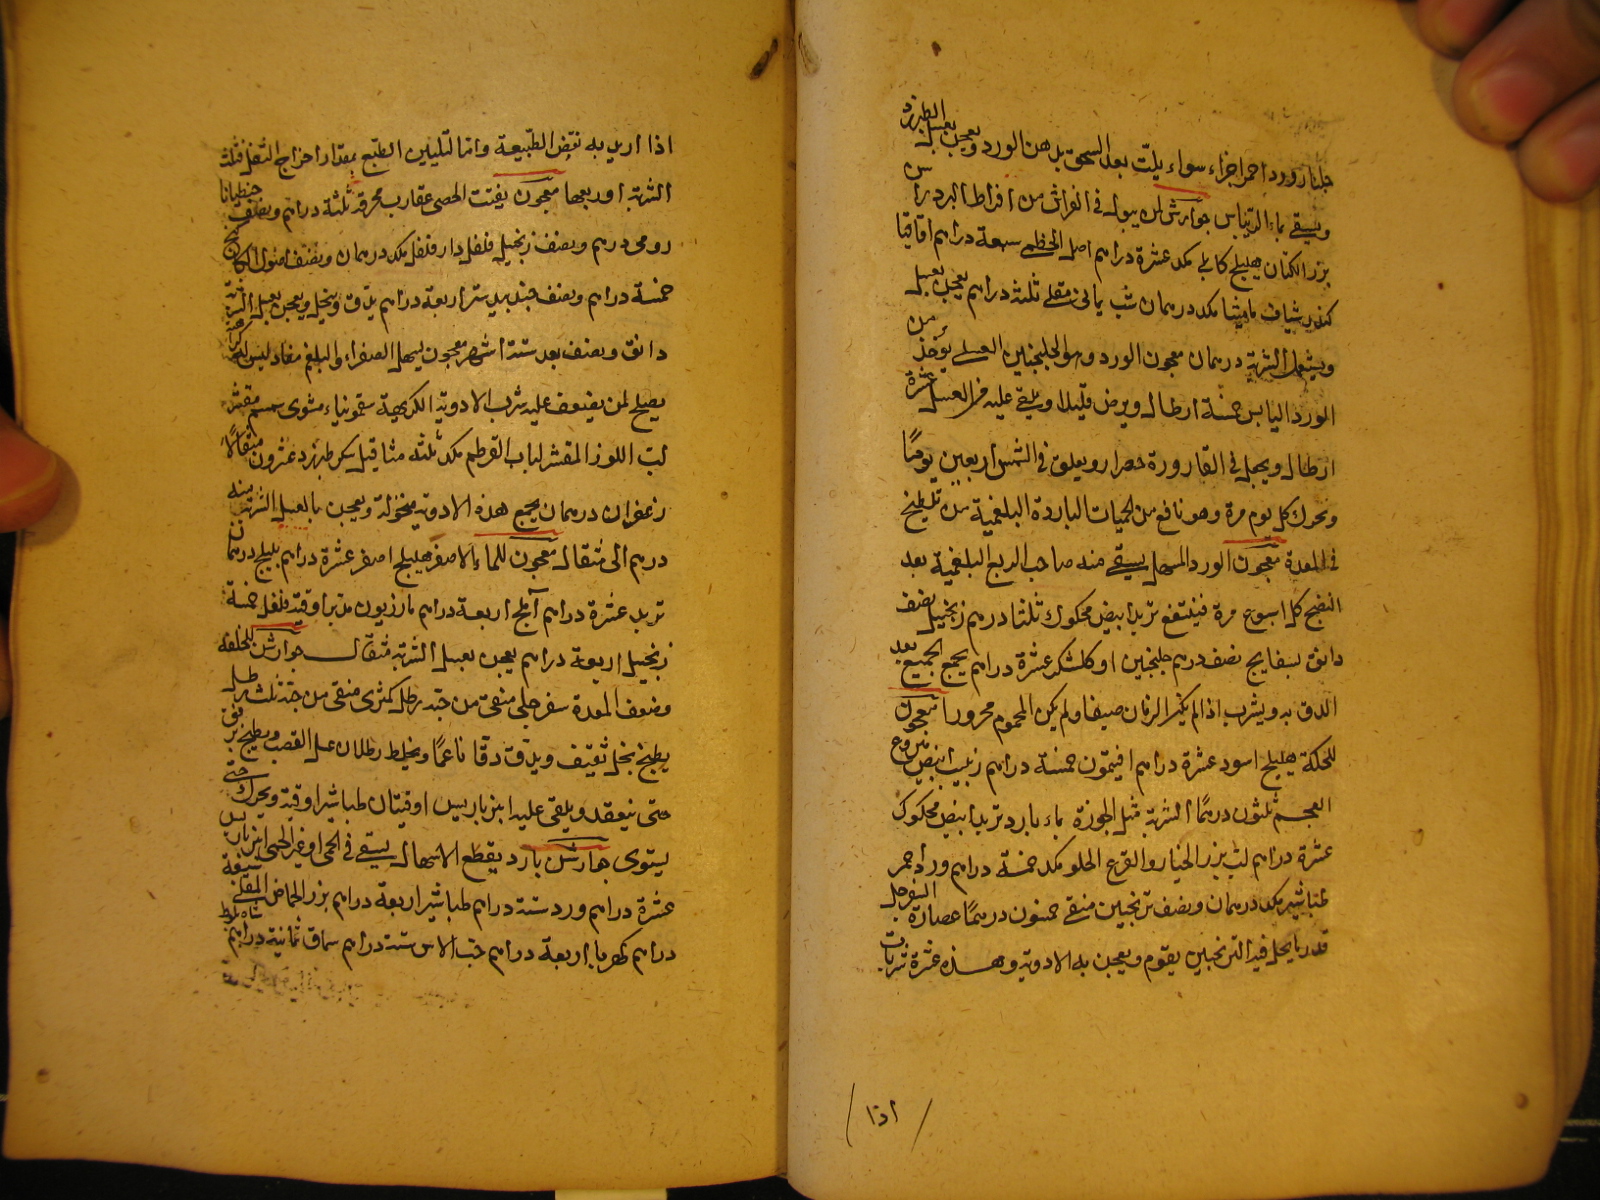 جلنار ورد احمر اجزاء سواء يلت بعد السحق بدهن الورد ويعجن بعسل الطبرزد
ويسقى بماء الريباس جوارش لمن يبول في الفراش من افراط البرد راسن
بزر الكتان هليلج كابلي مكد عشرة دراهم اصل الخطمى سبعة دراهم اقاقيا
كندر شياف ماميثا مكد درهمان شب يمانى مقلى ثلثة دراهم يعجن بعسل
ويستعمل الشربة درهمان معجون الورد وهو الجلنجبين العسلى يؤخذ من
الورد اليابس خمسة ارطال ويرض قليلا ويلقى عليه من العسل عشرة
ارطال ويجعل في القارورة خضرا ويعلق في الشمس اربعين يوما
ونحرك كل يوم مرة وهو نافع من الحميات الباردة البلغمية من تلطيخ
في المعدة معجون الورد المسهل يسقى منه صاحب الربع البلغمية بعد
النضج كل اسبوع مرة فينتفع تربد ابيض محكوك ثلثا درهم زنجبيل نصف
دانق بسفايج نصف درهم جلنجبين او كلشكر عشرة دراهم يجمع الجميع بعد
الدق به ويشرب اذا لم يكن الزمان صيفا ولم يكن المحموم محرورا معجون
للحكة هليلج اسود عشرة دراهم افيتمون خمسة دراهم زبيب ابيض منزوع
العجم ثلثون درهما الشربة مثل الجوزة بماء بارد تربد ابيض محكوك
عشرة دراهم لب بزر الخيار والقرع الحلو مكد خمسة دراهم ورد احمر
طباشير مكد درهمان ونصف ترنجبين منقى خمسون درهما عصارة السفرجل
قدر ما يحل فيه الترنجبين يقوم ويعجن به الادوية وهذه عشرة شربات
اذا
اذا اريد به نقض الطبيعة واما لتليين الطبع بمقدار اخراج الثفل فثلث
الشربة او ربعها معجون يفتت الحصى عقارب محرقة ثلثة دراهم ونصف جنطيانا
رومى درهم ونصف زنجبيل فلفل دار فلفل مكد درهمان ونصف اصول الكاكنج
خمسة دراهم ونصف جندبيدستر اربعة دراهم يدق وينخل ويعجن بعسل الشربة
دانق ونصف بعد ستة اشهر معجون يسهل الصفراء والبلغم معا وليس له كرب
يصلح لمن يضعف عليه شرب الادوية الكريهة سقمونياء مشوى سمسم مقشر
لب اللوز المقشر لباب القرطم مكد ثلثة مثاقيل سكر طبرزد عشرون مثقالا
زعفران درهمان يجمع هذه الادوية منخولة ويعجن بالعسل الشربة منه
درهم الى مثقال معجون للماء الاصفر هليلج اصفر عشرة دراهم بليلج درهمان
تربد عشرة دراهم املج اربعة دراهم مازريون مدبر اوقية فلفل خمسة
زنجبيل اربعة دراهم يعجن بعسل الشربة مثقال جوارش للخلفة
وضعف المعدة سفرجل منقى من حبه رطل كمثرى منقى من حبه ثلث رطل
يطبخ بخل ثقيف ويدق دقا ناعما ويخلط رطلان عسل القصب ويطبخ برفق
حتى ينعقد ويلقى عليه انبرباريس اوقيتان طباشير اوقية ويحرك حتى
يستوى جوارش بارد يقطع الاسهال يسقى في الحمى او غير الحمى انبرباريس
عشرة دراهم ورد ستة دراهم طباشير اربعة دراهم بزر الحماض المقلى سبعة
دراهم كهربا اربعة دراهم حب الاس ستة دراهم سماق ثمانية دراهم شاه بلوط